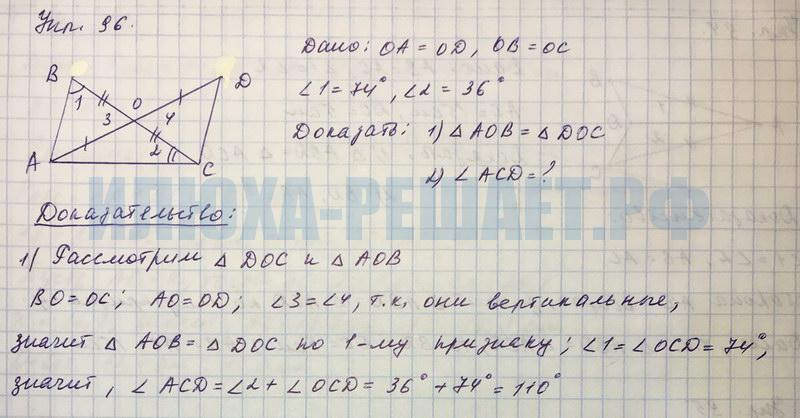 Упр. 96.
Дано: OA = OD, OB = OC
∠1 = 74°, ∠2 = 36°
Доказать: 1) △ AOB = △ DOC
2) ∠ ACD = ?
B
D
1
O
3
4
2
A
C
ИЛЮХА-РЕШАЕТ.РФ
Доказательство:
1) Рассмотрим △ DOC и △ AOB
BO = OC; AO = OD; ∠3 = ∠4, т.к. они вертикальные,
значит △ AOB = △ DOC по 1-му признаку; ∠1 = ∠ OCD = 74°,
значит, ∠ ACD = ∠2 + ∠ OCD = 36° + 74° = 110°